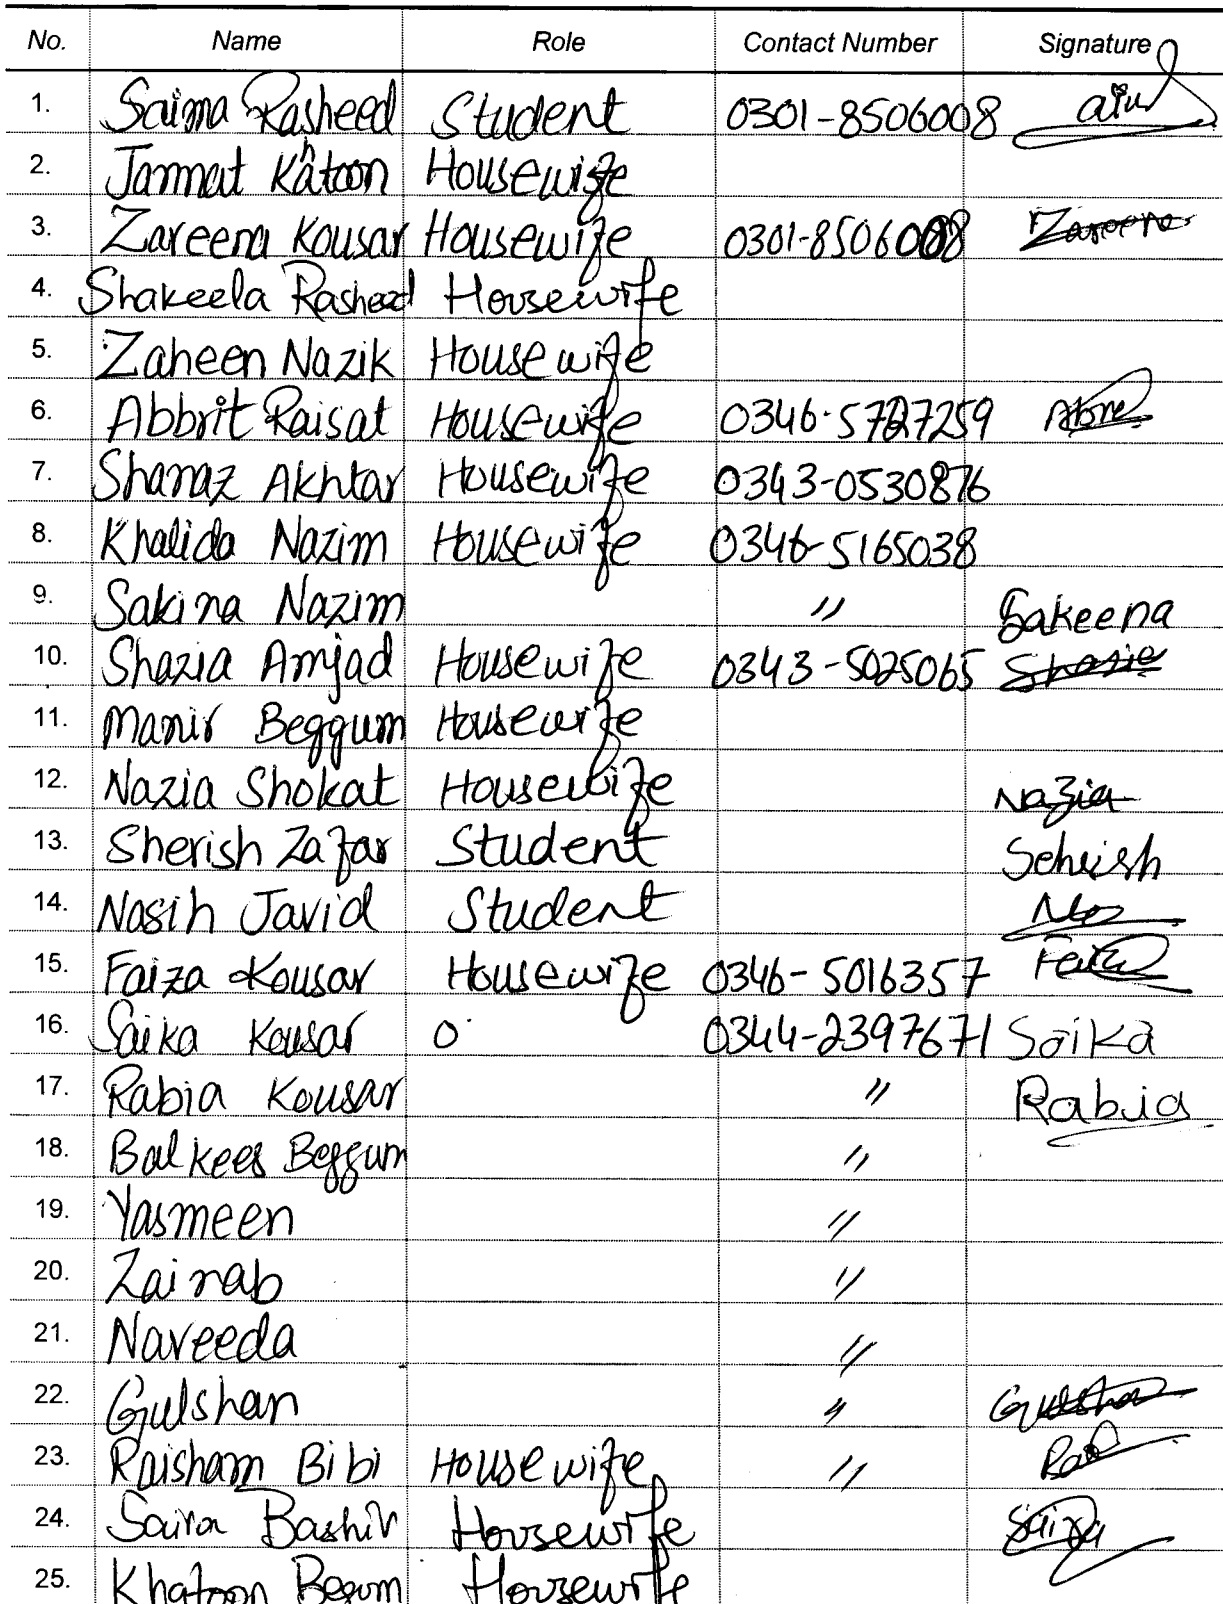 No. Name Role Contact Number Signature
1. Saima Rasheed Student 0301-8506008
2. Jannat Kâtoon Housewife
3. Zareena Kousar Housewife 0301-8506008 Zareena
4. Shakeela Rasheed Housewife
5. Zaheen Nazik Housewife
6. Abbrit Raisat Housewife 0346-5727259
7. Shanaz Akhtar Housewife 0343-0530876
8. Khalida Nazim Housewife 0346-5165038
9. Sakina Nazim " Sakeena
10. Shazia Amjad Housewife 0343-5025065 Shazia
11. Manir Beggum Housewife
12. Nazia Shokat Housewife Nazia
13. Sherish Zafar Student Sehrish
14. Nasih Javid Student
15. Faiza Kousar Housewife 0346-5016357
16. Saika Kousar 0344-2397671 Saika
17. Rabia Kousar " Rabia
18. Balkees Beggum "
19. Yasmeen "
20. Zainab "
21. Naveeda "
22. Gulshan " Gulshan
23. Raisham Bibi Housewife "
24. Saira Bashir Housewife Saira
25. Khatoon Begum Housewife